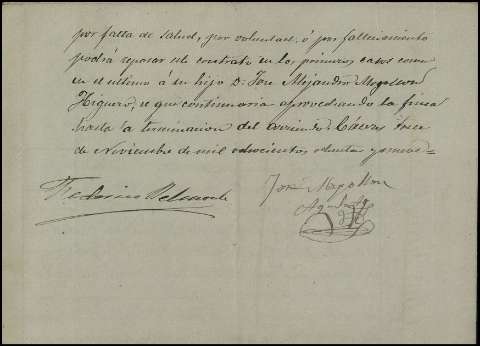 por falta de salud, por voluntad ó por fallecimiento
podrá repasar este contrato en los primeros casos como
en el ultimo á su hijo D. José Alejandro Mogollon
Higuero, que continuaria aprovechando la finca
hasta la terminacion del arriendo. Cáceres trece
de Noviembre de mil ochocientos ochenta y nueve=
Federico Belmonte
José Mogollon